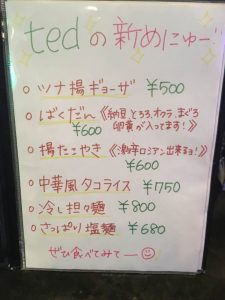 tedの新めにゅー
○ ツナ揚ギョーザ ¥500
○ ばくだん《納豆、とろろ、オクラ、まぐろ
¥600 卵黄が入ってます!》
○ 揚たこやき《激辛ロシアン出来るョ!》
¥600
○ 中華風タコライス ¥750
○ 冷し担々麺 ¥800
○ さっぱり塩麺 ¥680
ぜひ食べてみてー